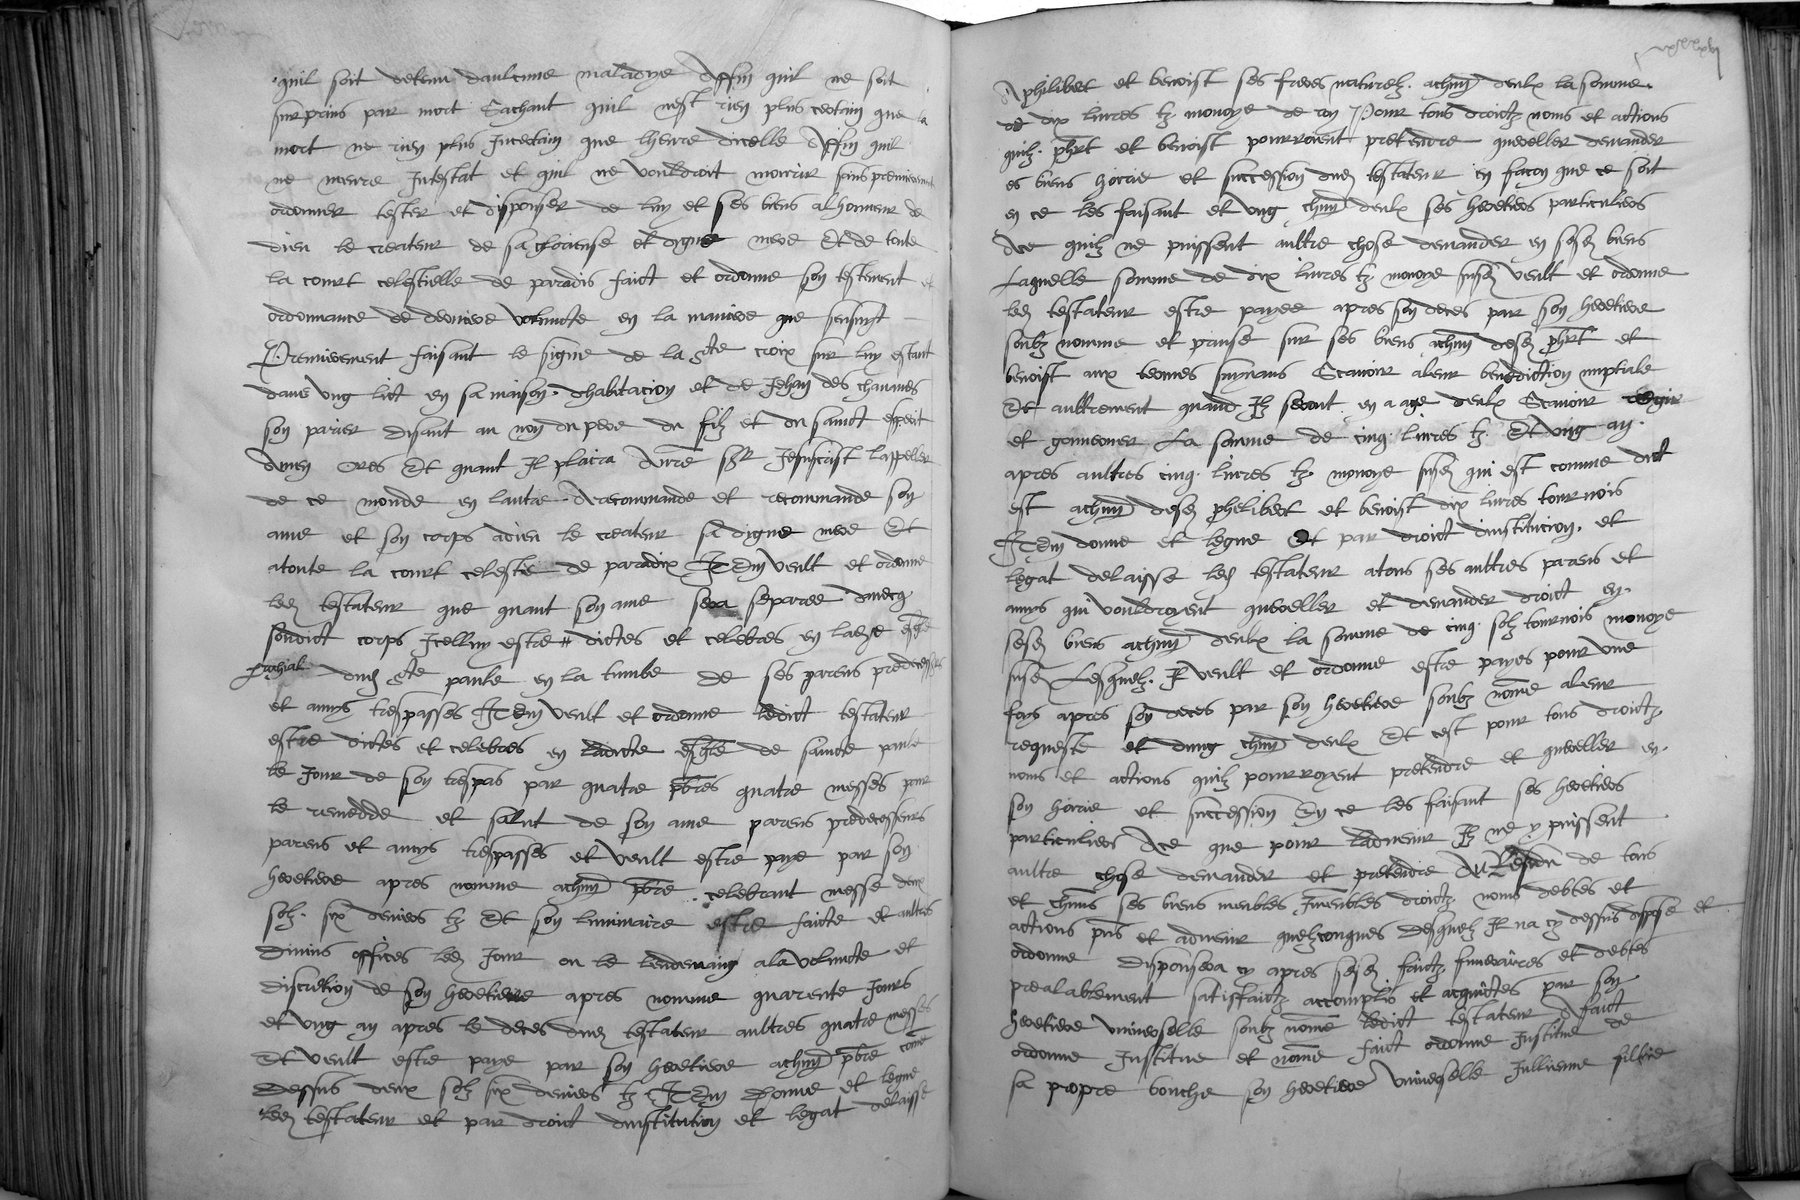 quil soit detenu daulcune maladye Affin quil ne soit
surprins par mort Sachant quil nest rien plus certain que la
mort ne rien plus Incertain que lheure dicelle Affin quil
ne meure Intestat et quil ne vouldroit mourir sans premierement
ordonner tester et disposer de luy et ses biens alhonneur de
dieu le createur de sa glorieuse et digne mere Et de toute
la court celestielle de paradis faict et ordonne son testement et
ordonnance de derniere volunte en la maniere que sensuyt
Premierement faisant le signe de la ste croix sur luy estant
dans ung lict en sa maison dhabitacion et de Jehan des chaumes
son parier disant au nom du pere du filz et du sainct esperit
Amen Ores Et quant Il plaira Anre sgr Jesucrist lappeller
de ce monde en lautre Arecommande et recommande son
ame et son corps adieu le createur sa digne mere Et
atoute la court celeste de paradix ITem veult et ordonne
led testateur que quant son ame sera separee duecq
sondict corps Icelluy estre dictes et celebres en ladte esgle
prochial dud ste paule en la tumbe de ses parens predecesseurs
et amys trespasses ITem veult et ordonne ledict testateur
estre dictes et celebres en ladicte esgle de saincte paule
le Jour de son trespas par quatre pbres quatre messes pour
le remedde et salut de son ame parens predecesseurs
parens et amys trespasses et veult estre paye par son
heretiere apres nomme achun pbre celebrant messe deux
solz six deniers tz Et son luminaire estre faicte et aultres
divins offices led Jour ou le lendemaing ala volunte et
discretion de son heretiere apres nomme quarente Jours
et ung an apres le deces dud testateur aultres quatre messes
Et veult estre paye par son heretiere achun pbre come
dessus deux solz six deniers tz ITem donne et legue
led testateur et par droict dinstitution et legat delaisse
A philibert et benoist ses freres naturelz achun deulx la somme
de dix livres tz monoye de roy Pour tous droictz noms et actions
quilz phrt et benoist pourroient pretendre quereller demander
es biens hoirie et succession dud testateur en facon que ce soit
en ce les faisant et ung chun deulx ses heretiers particuliers
Ace quilz ne puissent aultre chose demander en sesd biens
Laquelle somme de dix livres tz monoye susd veult et ordonne
led testateur estre payee apres son deces par son heretiere
soubz nomme et prinse sur ses biens achun desd phrt et
benoist aux termes suyvans Scavoir aleur benediction nuptiale
Et aultrement quand Ilz seront en aage deulx Scavoir regir
et gouverner La somme de cinq livres tz Et ung an
apres aultres cinq livres tz monoye susd qui est comme dict
est achun desd philibert et benoist dix livres tournois
ITem donne et legue Et par droict dinstitucion et
legat delaisse led testateur atous ses aultres parens et
amys qui vouldroyent quereller et demander droict en
sesd biens achun deulx la somme de cinq solz tournois monoye
susd Lesquelz Il veult et ordonne estre payes pour une
foys apres son deces par son heretiere soubz nome aleur
requeste et dung chun deulx Et cest pour tous droictz
noms et actions quilz pourroyent pretendre et quereller en
son hoirie et succession En ce les faisant ses heretiers
particuliers Ace que pour ladvenir Ilz ne y puissent
aultre chose demander et pretendre Au Residu de tous
et chuns ses biens meubles Immeubles droictz noms debtes et
actions pns et advenir quelzconques desquelz Il na cy dessus dispose et
ordonne disposera cy apres sesd faictz funeraires et debtes
prealablement satisfaictz accomplis et acquictes par son
heretiere universelle soubz nome ledict testateur A faict
ordonne Institue et nome faict ordonne Institue de
sa propre bouche son heretiere universelle Jullienne